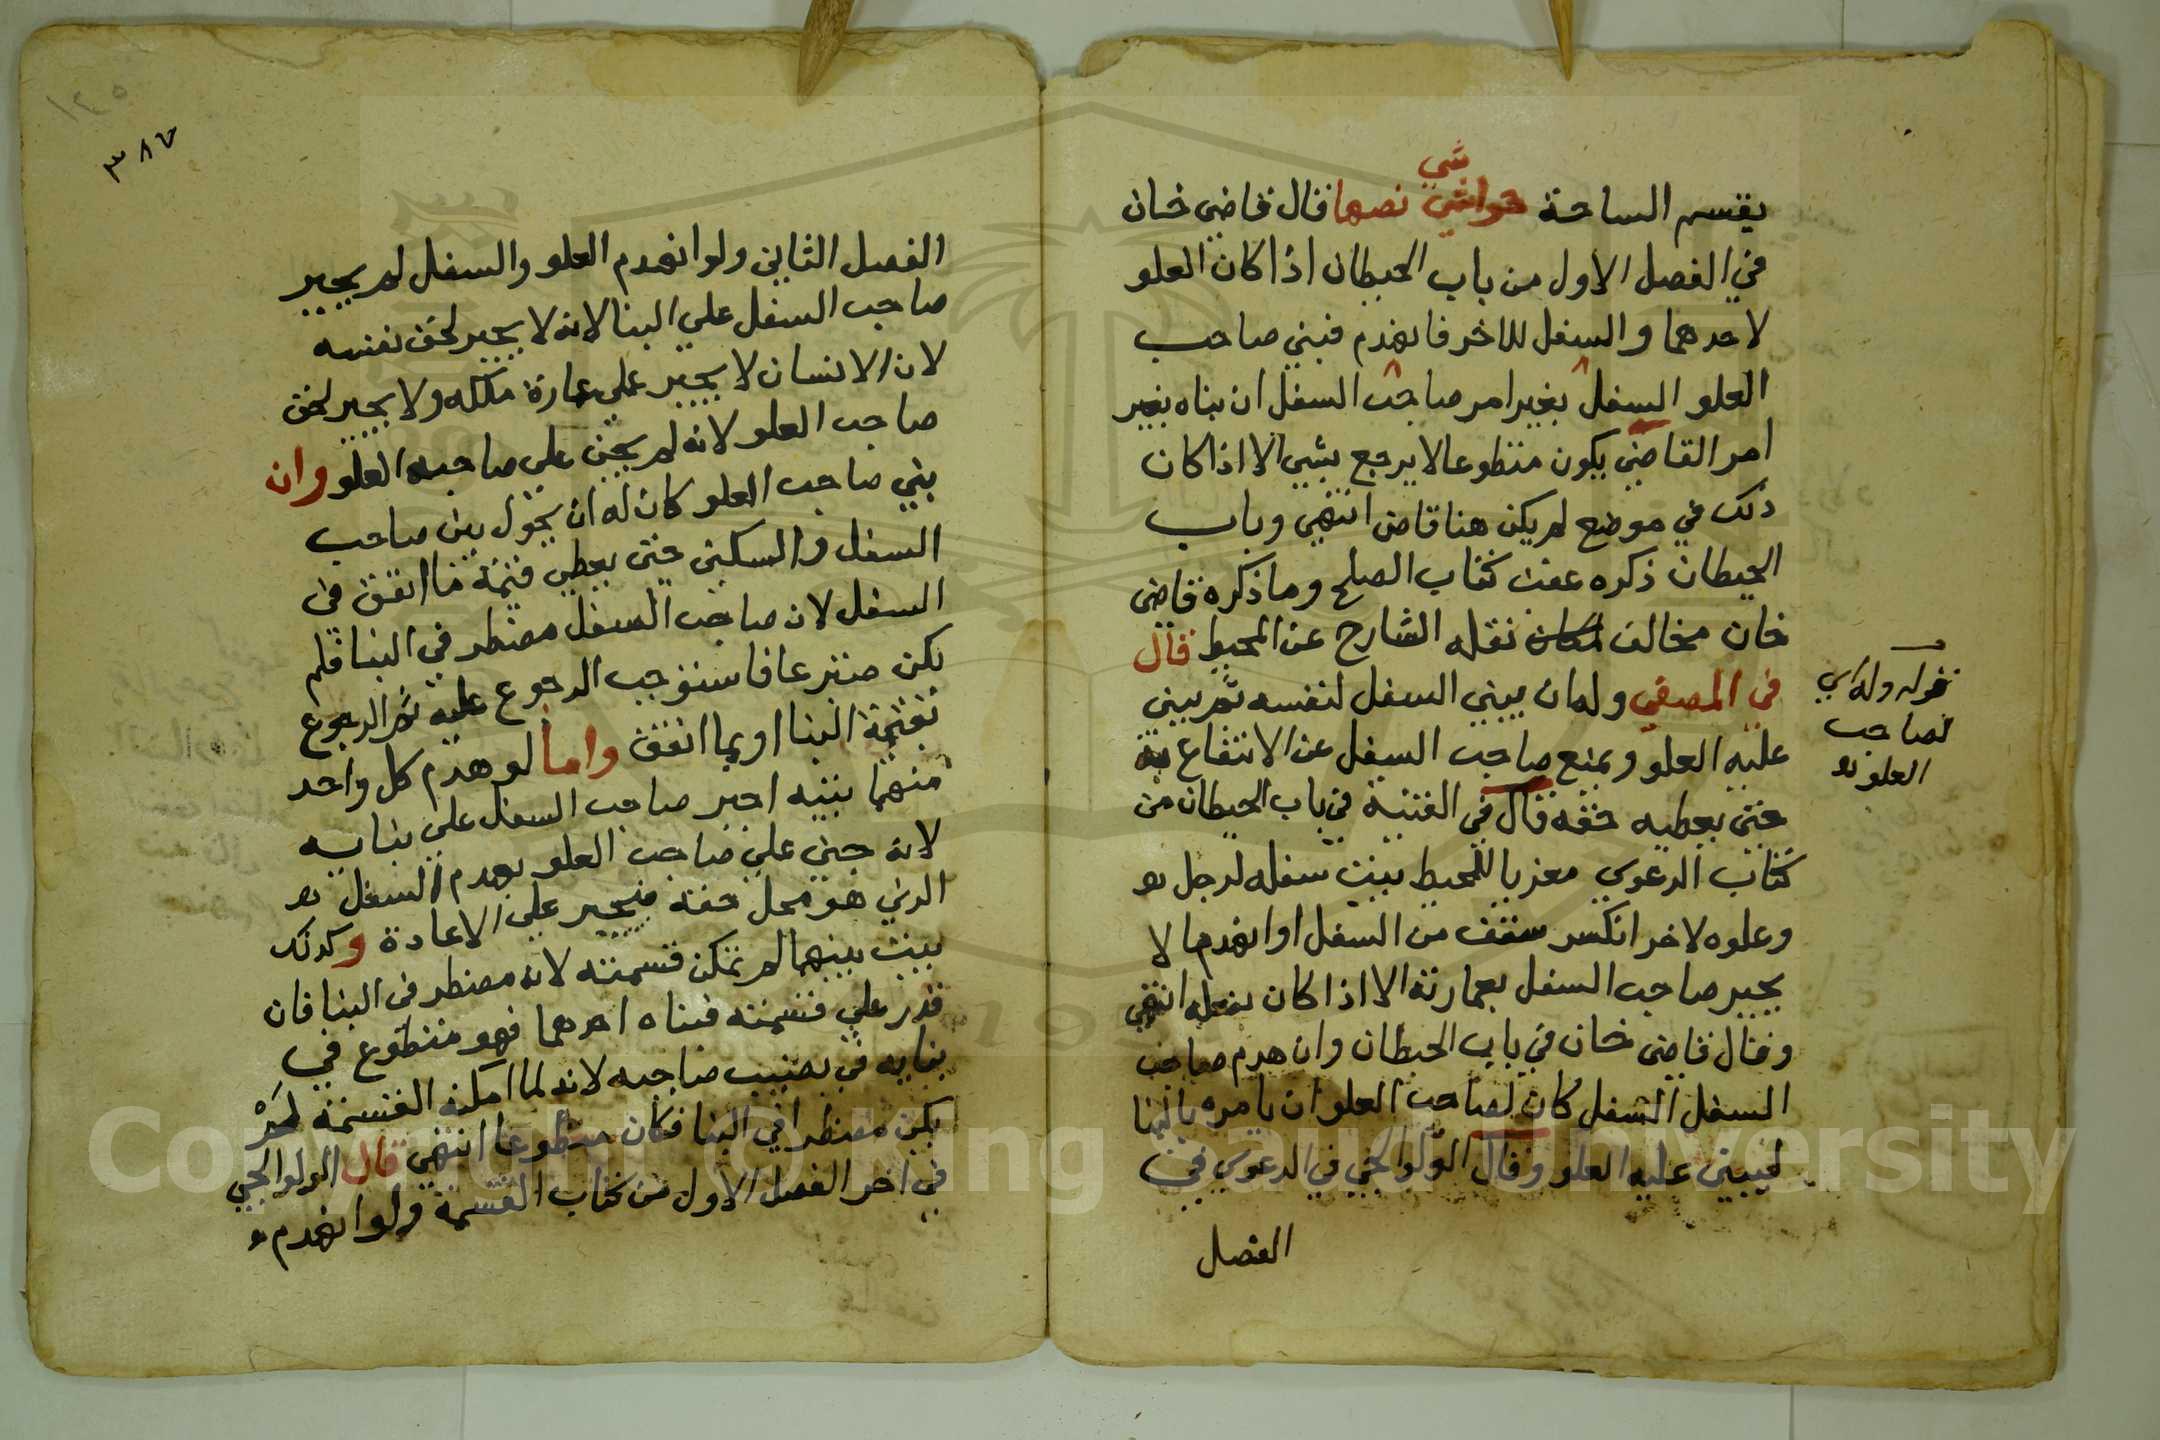 يقسم الساحة حواشي نصها قال قاضي خان
شي
في الفصل الاول من باب الحيطان اذا كان العلو
لاحدهما والسفل للاخر فانهدم فبني صاحب
العلو السفل بغير امر صاحب السفل ان بناه بغير
امر القاضي يكون متطوعا لا يرجع بشي الا اذا كان
ذلك في موضع لم يكن هنا قاض انتهي وباب
الحيطان ذكره عقب كتاب الصلح وما ذكره قاضي
خان مخالف نقله الشارح عن المحيط قال
في المصفي وله ان يبني السفل لنفسه ثم يبني
عليه العلو ويمنع صاحب السفل عن الانتفاع به
حتي يعطيه حقه قال في القنية في باب الحيطان من
كتاب الدعوي معزيا للمحيط بيت سفله لرجل
وعلوه لاخر انكسر سقف من السفل او انهدم لا
يجبر صاحب السفل بعمارته الا اذا كان بفعله انتهي
وقال قاضي خان في باب الحيطان وان هدم صاحب
السفل السفل كان لصاحب العلو ان يامره بالبنا
ليبني عليه العلو وقال الولوالجي في الدعوي في
الفصل
قوله وله اي
لصاحب
العلو
٣٨٧
١٤٥
الفصل الثاني ولو انهدم العلو والسفل لم يجبر
صاحب السفل علي البنا لانه لا يجبر لحق نفسه
لان الانسان لا يجبر علي عمارة ملكه ولا يجبر لحق
صاحب العلو لانه لم يجن علي صاحب العلو وان
بني صاحب العلو كان له ان يحول بين صاحب
السفل والسكني حتي يعطي قيمة ما انفق في
السفل لان صاحب السفل مضطر في البنا فلم
يكن متبرعا فاستوجب الرجوع عليه ثم الرجوع
بقيمة البنا او بما انفق واما لو هدم كل واحد
منهما بيته اجبر صاحب السفل علي بنايه
لانه جني علي صاحب العلو بهدم السفل
الذي هو محل حقه فيجبر علي الاعادة وكذلك
بيت بينهما لم تمكن قسمته لانه مضطر في البنا فان
قدر علي قسمته فبناه احدهما فهو متطوع في
بنايه في نصيب صاحبه لانه لما امكنه القسمة لم
يكن مضطرا في البنا فكان متطوعا انتهي قال الولوالجي
في اخر الفصل الاول من كتاب القسمة ولو انهدم
Copyright © King Saud University